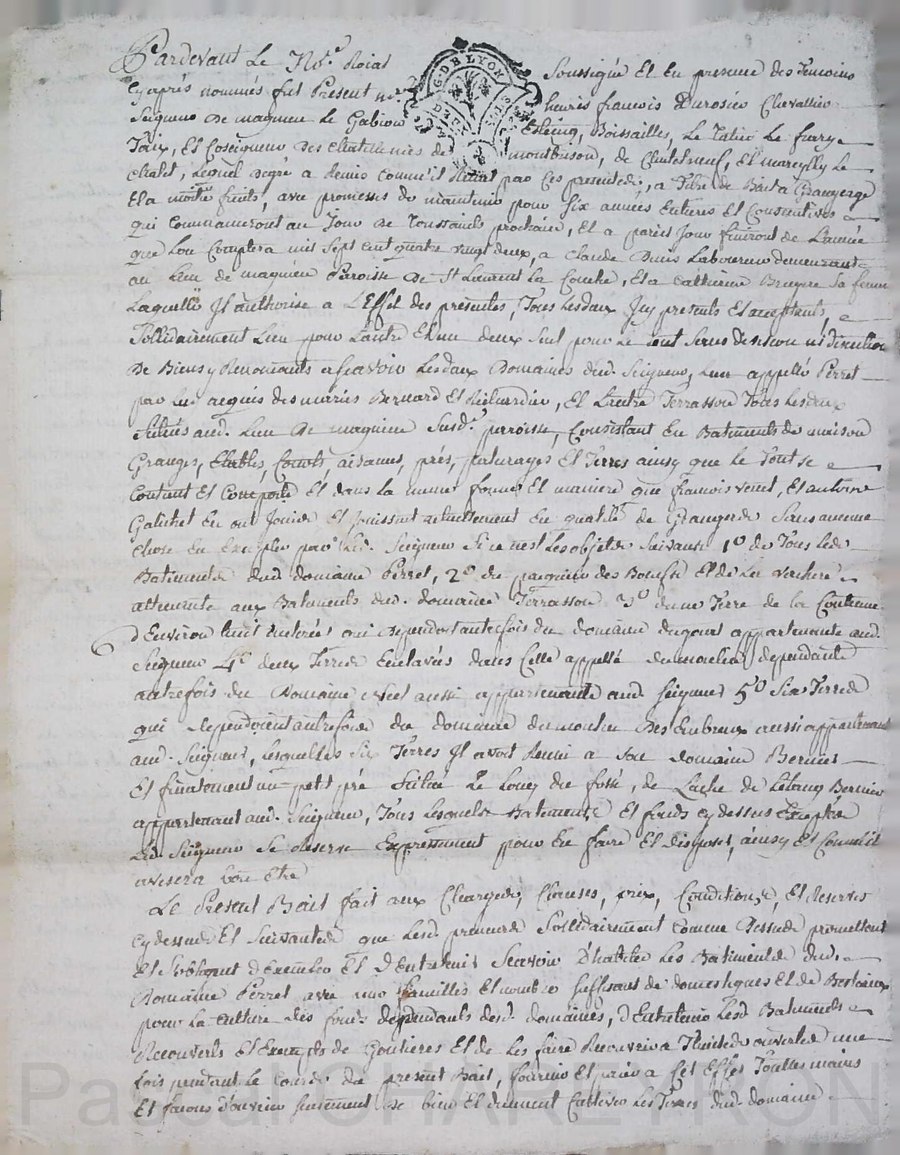 Pardevant Le No.re Roial Soussigné Et En presence des Temoins
Cy après nommés fut Present henris francois Chevallier
G. DE LYON
Seigneur de magnieu Le Gabion Boissailles, Le
Et Coseigneur des Chatellenies de montbrison, de Chatelneuf, Et marcilly Le
Chatel, Lequel de gré a Remis comme il Remet par Ces presentes, a Titre de Bail a Grangeage
Et a moitié fruits, avec promesses de maintenir pour Six années Entieres Et Consecutives
qui Commanceront au Jour de Toussaints prochain, Et a pareil Jour finiront de L'année
que Lon Comptera mil Sept Cent quatre vingt deux, a Claude Laboureur demeurant
au Lieu de magnieu Paroisse De St Laurent La Conche, Et a Catherine Bruyere Sa femme
Laquelle Il authorise a L'Effet des presentes, Tous Lesdeux Icy presents Et acceptants,
Sollidairement L'un pour L'autre Et un deux Seul pour Le tout Sans division ni discution
De Biens y Renonçants a scavoir Lesdeux Domaines dud. Seigneur, L'un appellé Perret
par Lui acquis des mariés Bernard Et Et L'autre Terrasson Tous Lesdeux
Situés aud. Lieu De magnieu Susd.e parroisse, Consistant En Batiments de maison
Granges, Etables, Cours, aisances, prés, paturages Et Terres ainsy que Le Tout Se
Contient Et Comporte Et dans La meme forme Et maniere que francois Et antoine
En ont Joui Et Jouissent actuellement En qualité de Grangers Sans aucune
Chose En Excepter par Led. Seigneur Si ce n'est Les objets Suivants 1o de Tous Les
Batiments dud domaine Perret, 2o du des Boeufs Et de Les
attenante aux Batiments dud. domaine Terrasson 3o d'une Terre de la Contenue
d'Environ huit qui dependoit autrefois du domaine appartenante aud.
Seigneur 4o deux Terres Enclavées dans Celle appellé dependante
autrefois du Domaine aussi appartenante aud Seigneur 5o Six Terres
qui dependoient autrefois du domaine du moulin Des aussi appartenant
aud. Seigneur, Lesquelles Six Terres Il avoit Reuni a Son domaine Bernier
Et finalement un petit pré Scitué Le Long du fossé, de de Letang Bernier
appartenant aud. Seigneur, Tous Lesquels Batiments Et fonds cy dessus Exceptés
Led. Seigneur Se Reserve Expressement pour En faire Et disposer, ainsy Et Comme il
avisera bon Etre
Le Present Bail fait aux Charges, Clauses, prix, Conditions, Et Reserves
Cy dessus Et Suivantes que Lesd. preneurs Sollidairement Comme dessus promettent
Et S'obligent d'Executer Et d'Entretenir Scavoir d'habiter Les Batiments dud.
Domaine Perret avec une familles Et nombre Suffisant de domestiques Et de Bestiaux
pour La Culture des fonds dependants desd. domaines, d'Entretenir Lesd Batiments
Recouverts Et Exempts de Goutieres Et de Les faire Recouvrir a Thuiles une
fois pendant Le Cours du present Bail, fournir Et a Cet Effet Touttes mains
Et facons d'ouvrier Seulement De bien Et duement Cultiver Les Terres dud. domaine
Pascal CHAREYRON